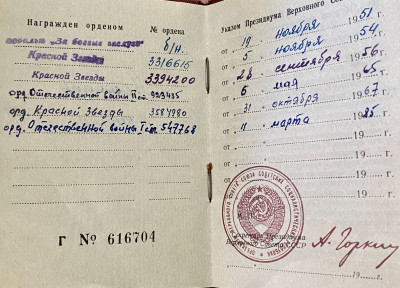 Награжден орденом
№ ордена
медалью „За боевые заслуги"
б/н.
Красной Звезды
3316615
Красной Звезды
3394200
орд. Отечественной войны II ст. 929435
орд. Красной Звезда 3587980
орд. Отечественной войны I ст. 547768
Г № 616704
Указом Президиума Верховного
от 19 ноября 1951
от 5 ноября 1954
от 28 сентября 1956
от 6 мая 1965
от 31 октября 1967
от 11 марта 1985
от 19 г.
19 г.
19 г.
Секретарь Президиума
Верховного Совета СССР
А. Горкин